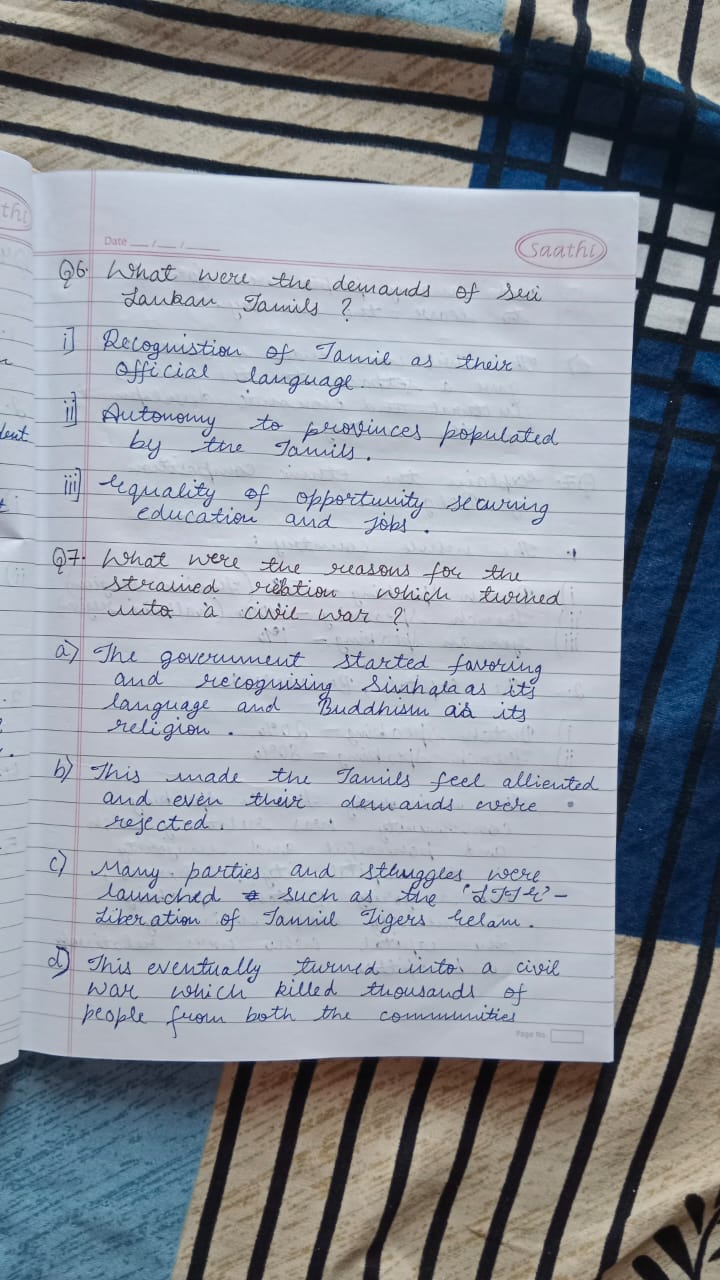 thi
Date __/__/__
Saathi
Q6. What were the demands of Sri
Lankan Tamils ?
i] Recognistion of Tamil as their
official language.
ii] Autonomy to provinces populated
by the Tamils.
iii] Equality of opportunity securing
education and jobs.
Q7. What were the reasons for the
strained relation which turned
into a civil war ?
a) The government started favoring
and recognising Sinhala as its
language and Buddhism as its
religion.
b) This made the Tamils feel alliented
and even their demands were
rejected.
c) Many parties and struggles were
launched such as the 'LTTE' -
Liberation of Tammil Tigers Eelam.
d) This eventually turned into a civil
war which killed thousands of
people from both the communities
Page No.